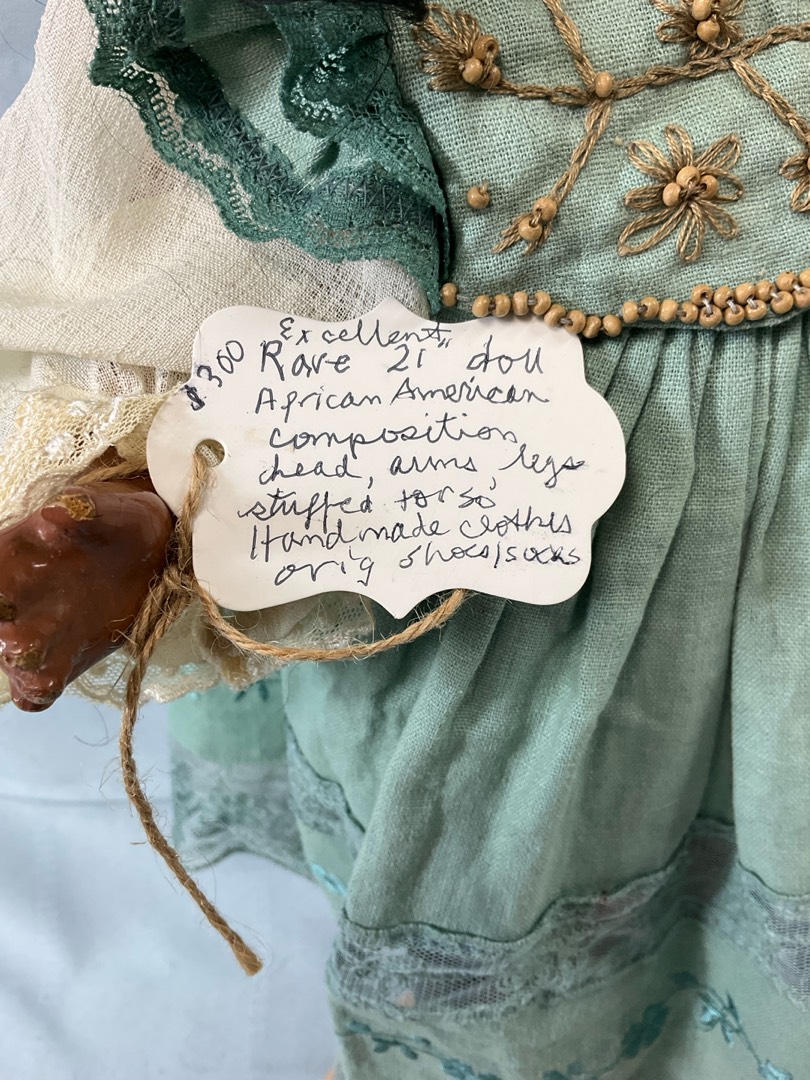 $300
Excellent
Rare 21" doll
African American
composition
head, arms, legs
stuffed torso
Handmade clothes
orig shoes/socks